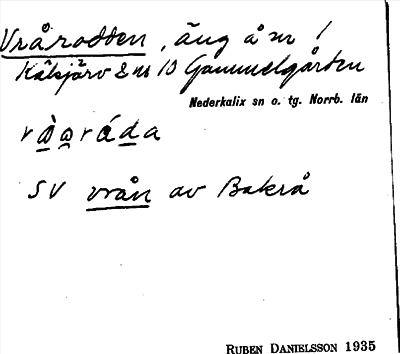 Vrårodden, äng å nr 1
Kälsjärv 2 nr 10 Gammelgården
Nederkalix sn o. tg. Norrb. län
SV vrån av Bakrå
RUBEN DANIELSSON 1935